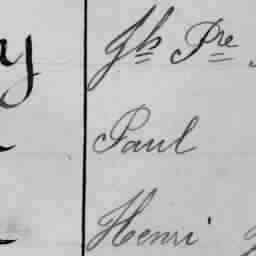 y Jh Pre
Paul
Henri